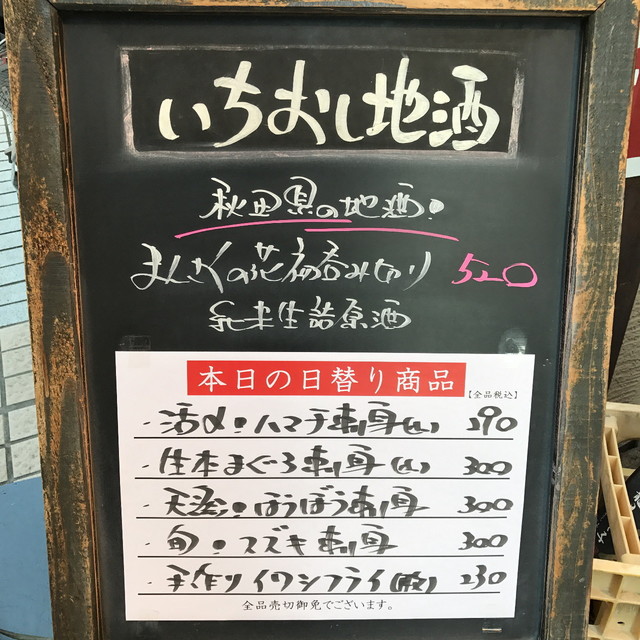 いちおし地酒
秋田県の地酒!
まんさくの花 初呑み切り 520
純米生詰原酒
本日の日替り商品
【全品税込】
・活〆!ハマチ刺身(小) 290
・生本まぐろ刺身(小) 300
・天然!ほうぼう刺身 300
・旬!スズキ刺身 300
・手作りイワシフライ(1枚) 230
全品売切御免でございます。